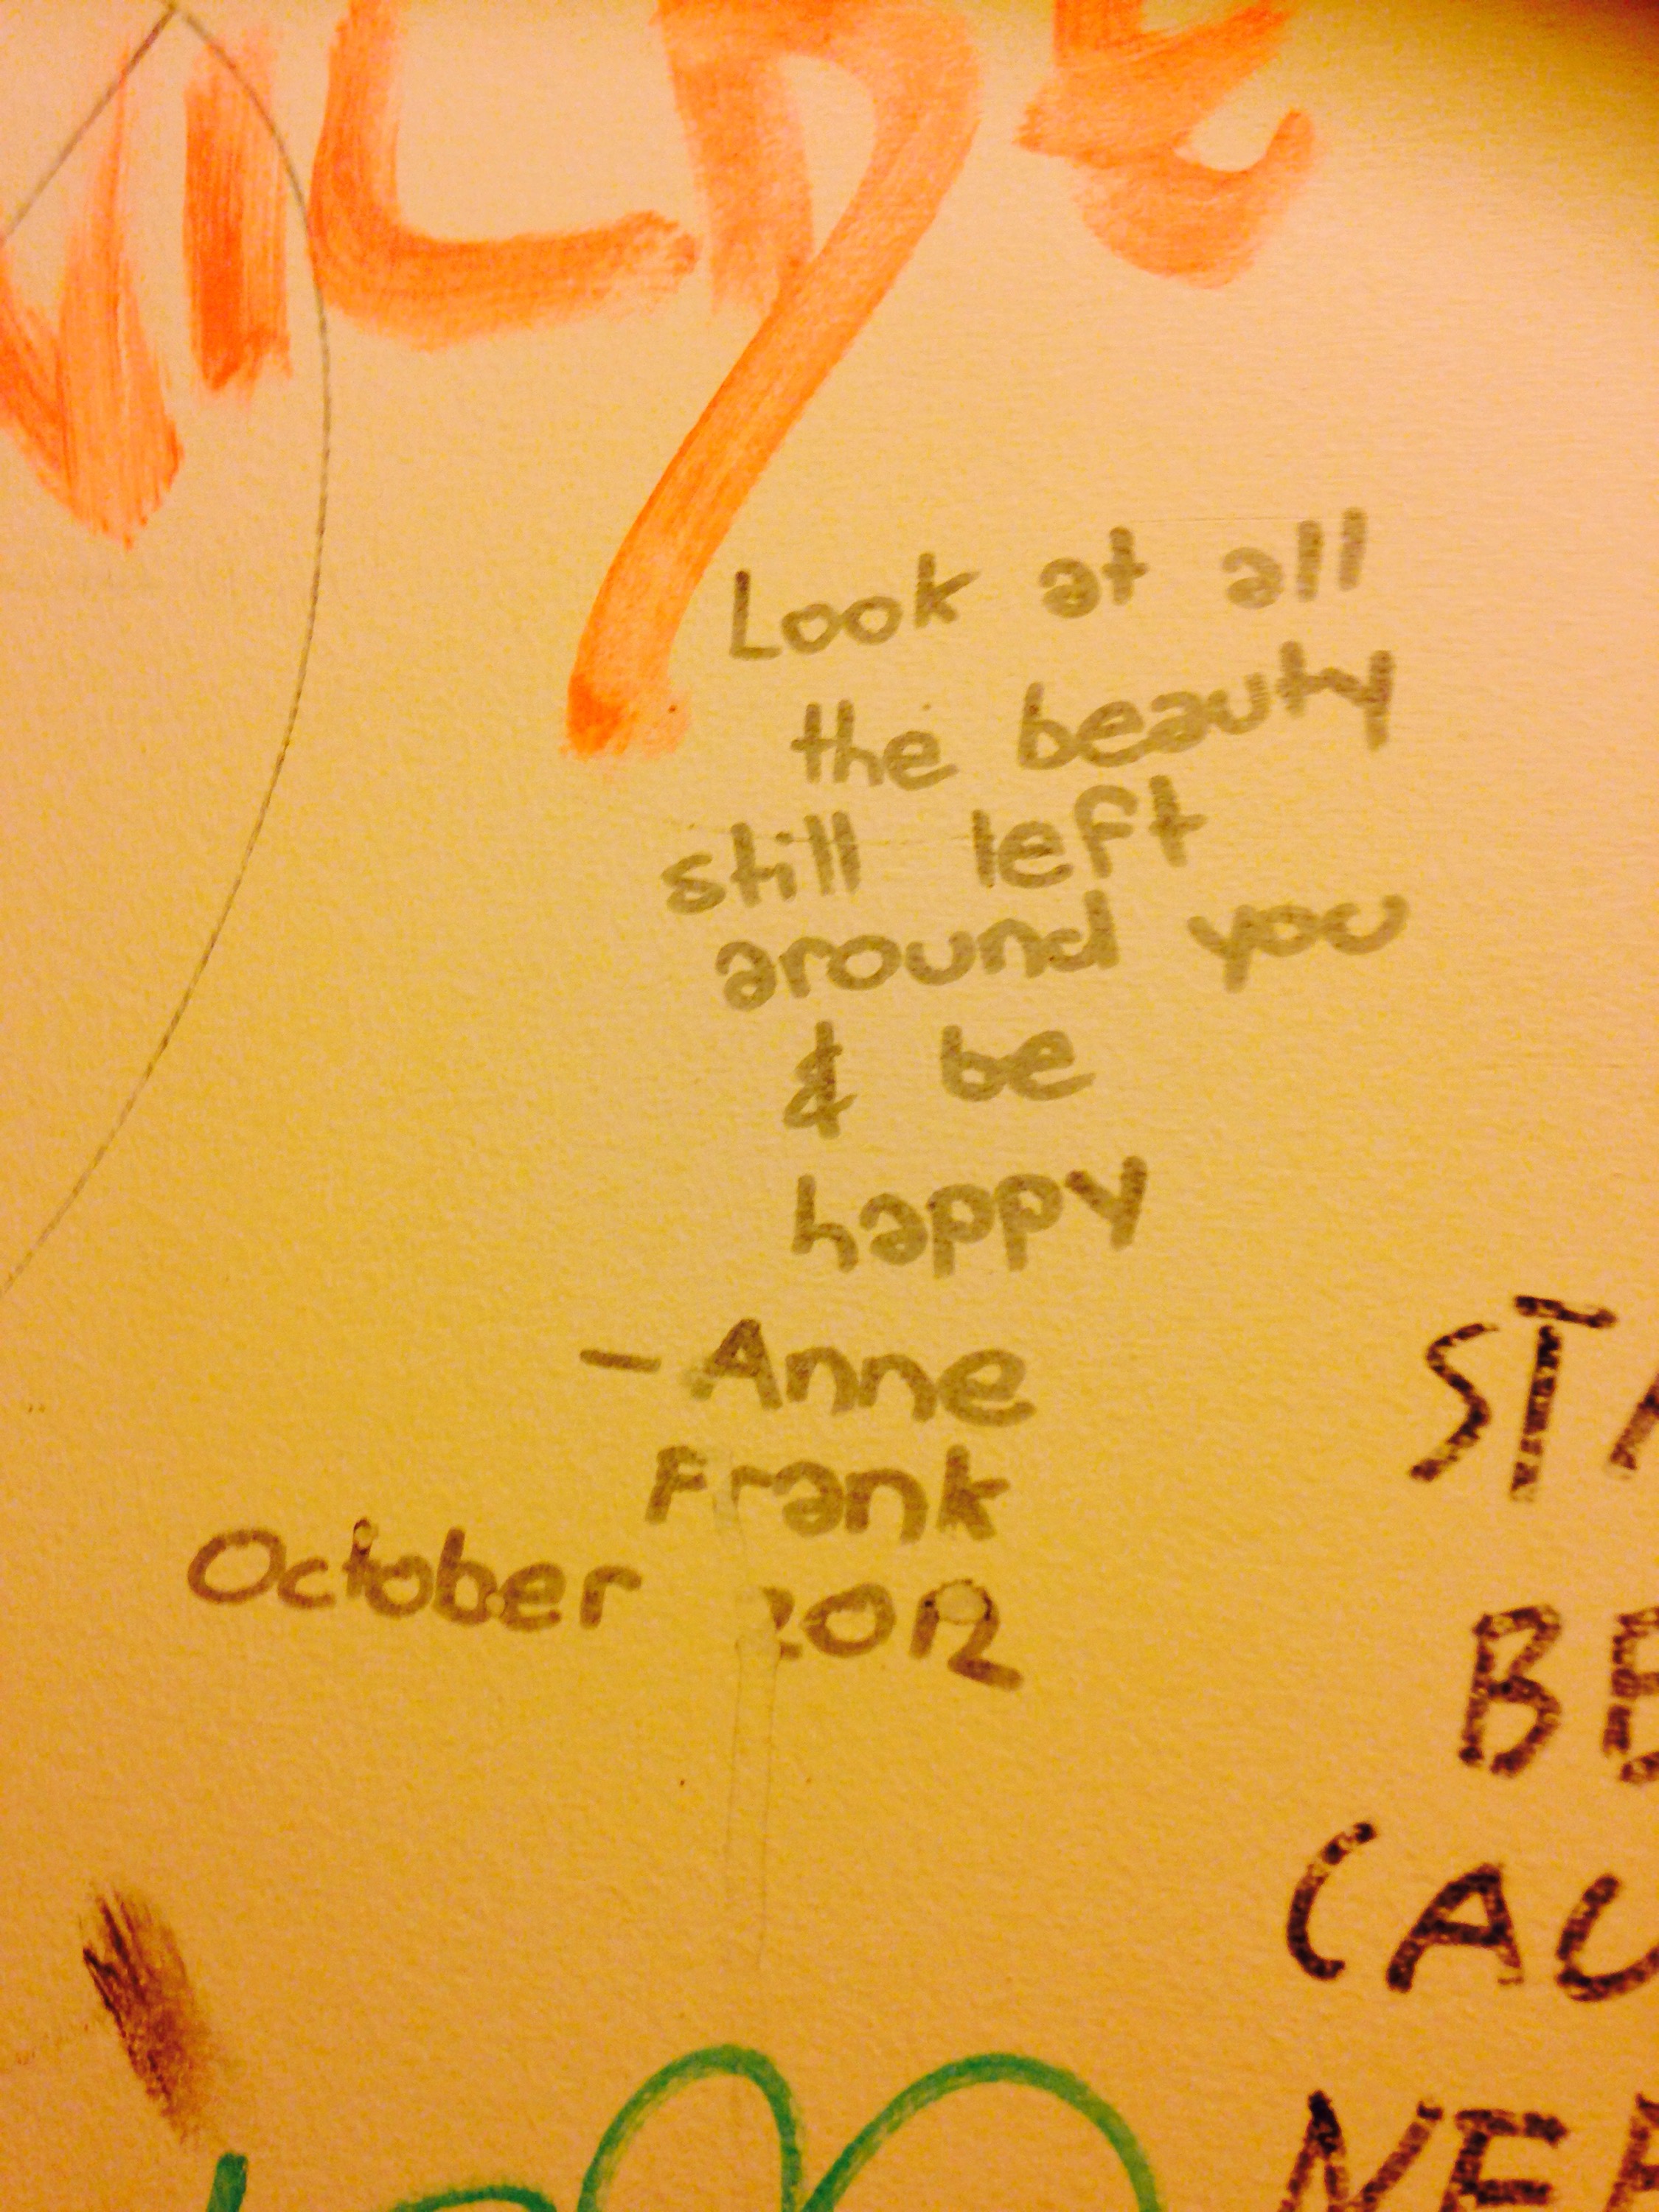 WILDE
Look at all
the beauty
still left
around you
& be
happy
- Anne
Frank
October 2012
ST
BE
CAU
NE